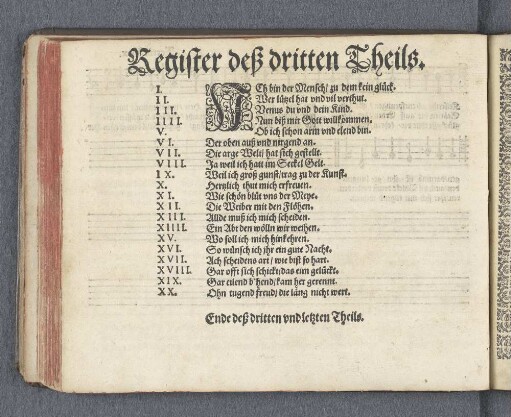 Register deß dritten Theils.
I. ICh bin der Mensch/ zu dem kein glück.
II. Wer lützel hat vnd vil verthut.
III. Venus du vnd dein Kind.
IIII. Nun biß mir Gott willkommen.
V. Ob ich schon arm vnd elend bin.
VI. Der oben auß vnd nirgend an.
VII. Die arge Welt hat sich gestellt.
VIII. Ja weil ich hatt im Seckel Gelt.
IX. Weil ich groß gunst/ trag zu der Kunst.
X. Hertzlich thut mich erfreuen.
XI. Wie schön blüt vns der Meye.
XII. Die Weiber mit den Flöhen.
XIII. Allde muß ich mich scheiden.
XIIII. Ein Abt den wölln wir weihen.
XV. Wo soll ich mich hinkehren.
XVI. So wünsch ich jhr ein gute Nacht.
XVII. Ach scheidens art/ wie bist so hart.
XVIII. Gar offt sich schickt/ das eim gelückt.
XIX. Gar eilend b'hend/ kam her gerennt.
XX. Ohn tugend freud/ die lang nicht wert.
Ende deß dritten vnd letzten Theils.